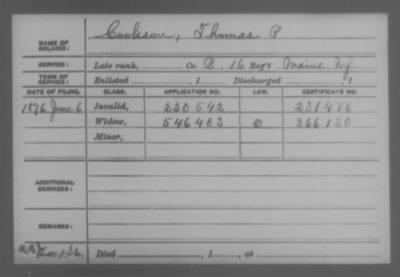 NAME OF SOLDIER: Cookson, Thomas P
SERVICE: Late rank, Co. B, 16 Reg't Maine Inf
TERM OF SERVICE: Enlisted , 1 Discharged , 1
DATE OF FILING. CLASS. APPLICATION NO. LAW. CERTIFICATE NO.
1876 June 6 Invalid, 220542 231486
Widow, 546403 366130
Minor,
ADDITIONAL SERVICES:
REMARKS:
Died , 1 , at